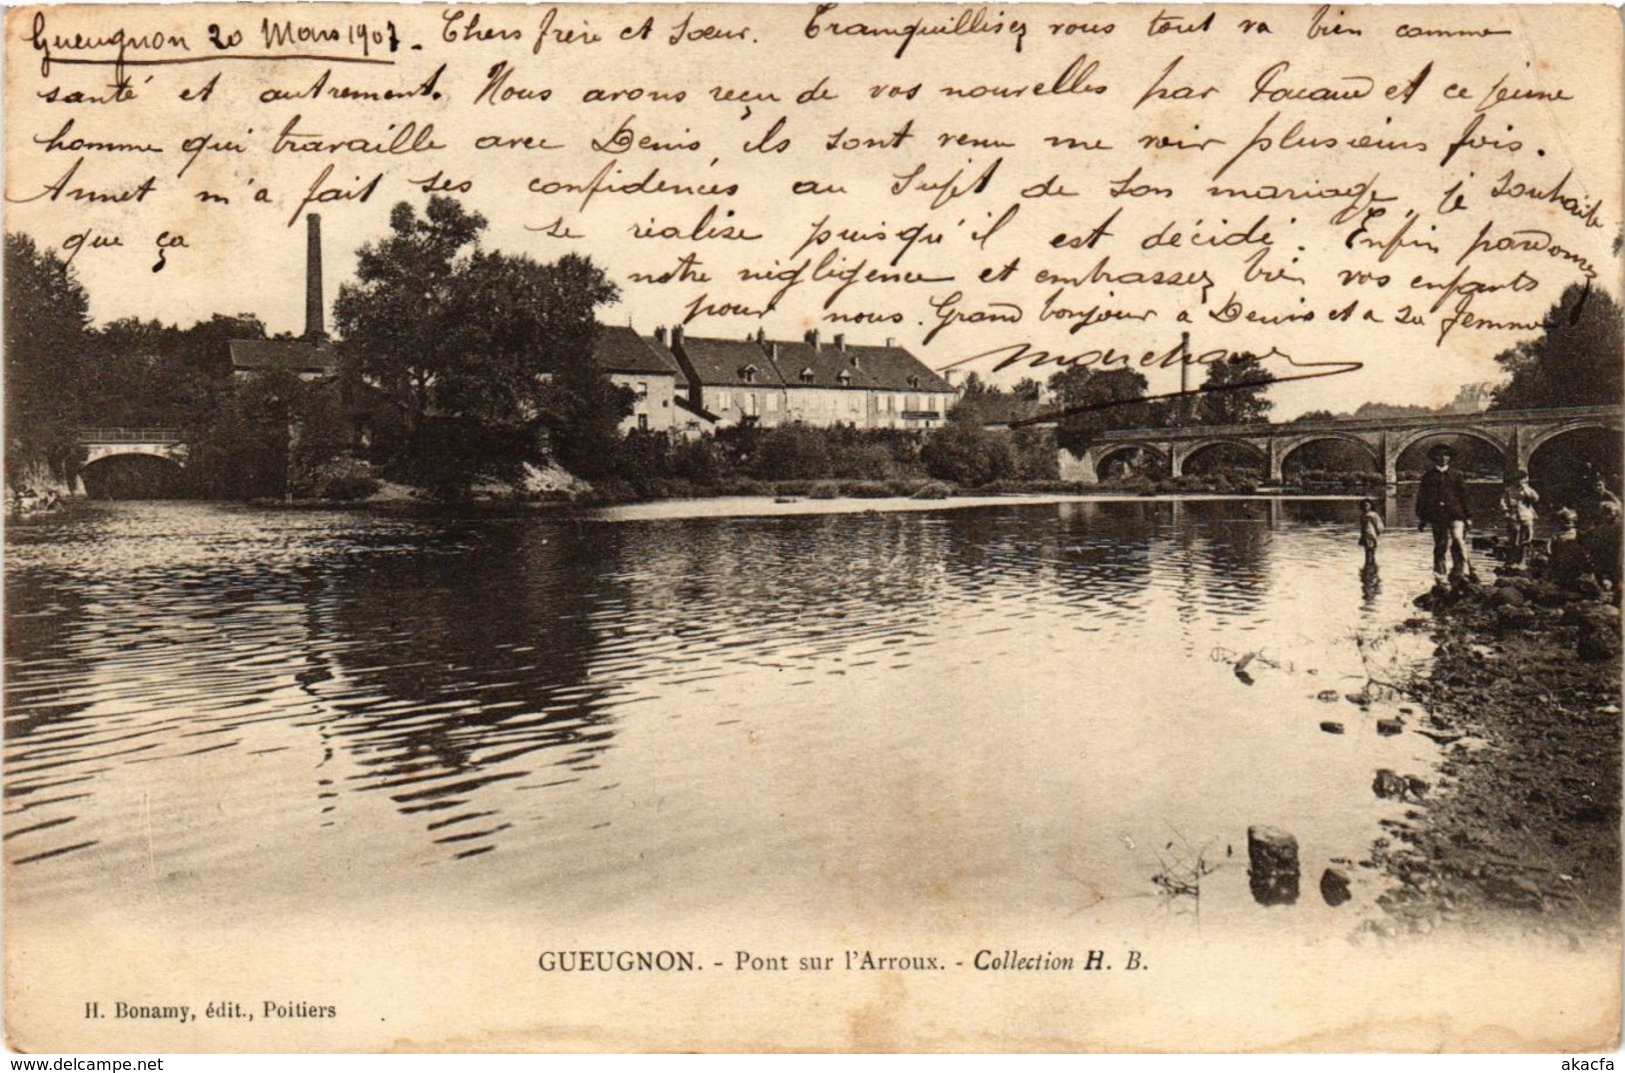 Gueugnon 20 Mars 1907. Chers frère et sœur. Tranquillisez vous tout va bien comme
santé et autrement. Nous avons reçu de vos nouvelles par et ce jeune
homme qui travaille avec Denis, ils sont venu me voir plusieurs fois.
Annet m'a fait ses confidences au sujet de son mariage, je souhaite
que ça se réalise puisqu'il est décidé. Enfin pardonnez
notre négligence et embrassez bien vos enfants
pour nous. Grand bonjour à Denis et a sa femme
GUEUGNON. - Pont sur l'Arroux. - Collection H. B.
H. Bonamy, édit., Poitiers
akacfa